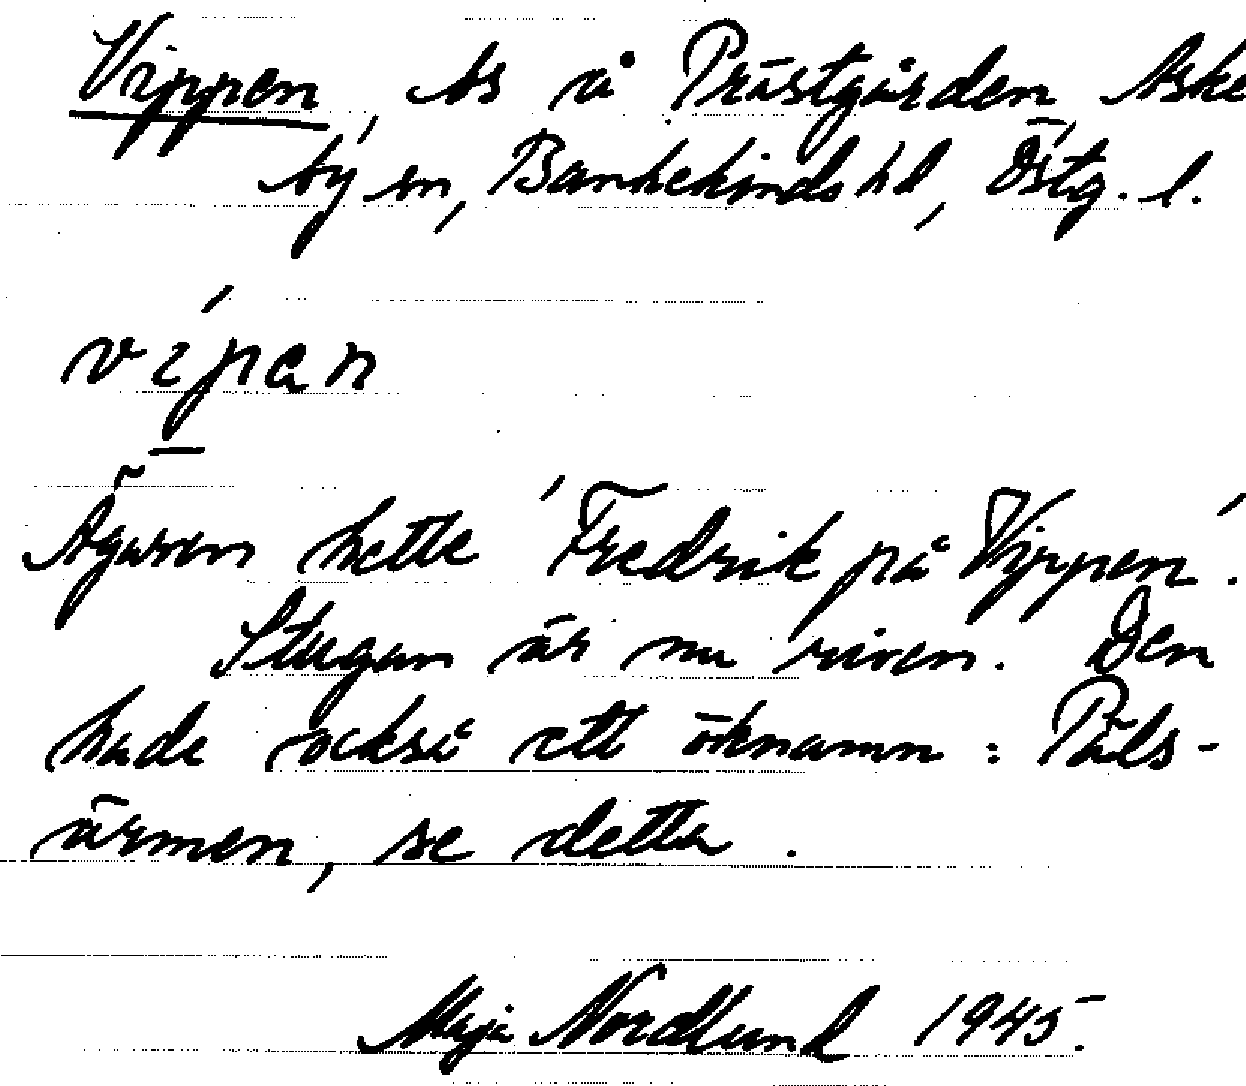 Vippen, bs å Prästgården, Aske
by sn, Bankekinds hd, Östg. l.
vípan
Ägaren hette 'Fredrik på Vippen'.
Stugan är nu riven. Den
hade också ett öknamn: Päls-
ärmen, se detta.
Maja Nordlund 1945.